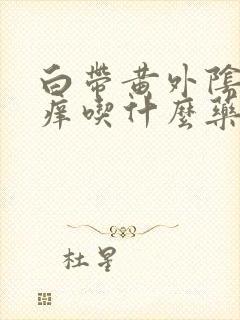 白帶黃外陰
痒喫什麼藥
杜星